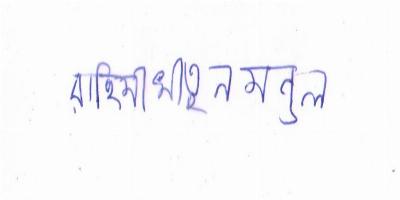 রাহিমা খাতুন মন্ডল